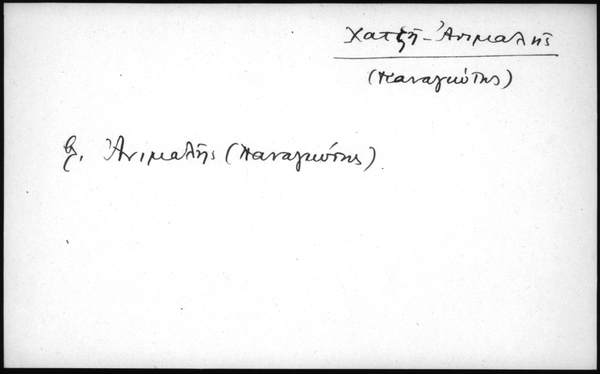 Χατζῆ-Ἀνιμαλῆς
(Παναγιώτης)
βλ. Ἀνιμαλῆς (Παναγιώτης)